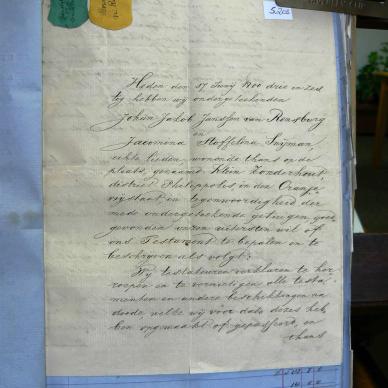 Heden den 17 Junij 1900 drie en zes
tig hebben wij ondergeteekenden
Johan Jakob Janssen van Rensburg
en
Jacomina Stoffelina Snijman,
echte lieden, wonende thans op de
plaats genaamd Klein Zonderhout
district Philippolis in den Oranje
vrijstaat in tegenwoordigheid der
mede ondergeteekende getuigen goed
gevonden onzen uitersten wil of
ons Testament te bepalen en te
beschrijven als volgt:
Wij testateuren verklaren te her
roepen en te vernietigen alle testa
menten en andere beschikkingen na
doode, welke wij voor dato dezes heb
ben opgemaakt of gepasseerd, en
thans